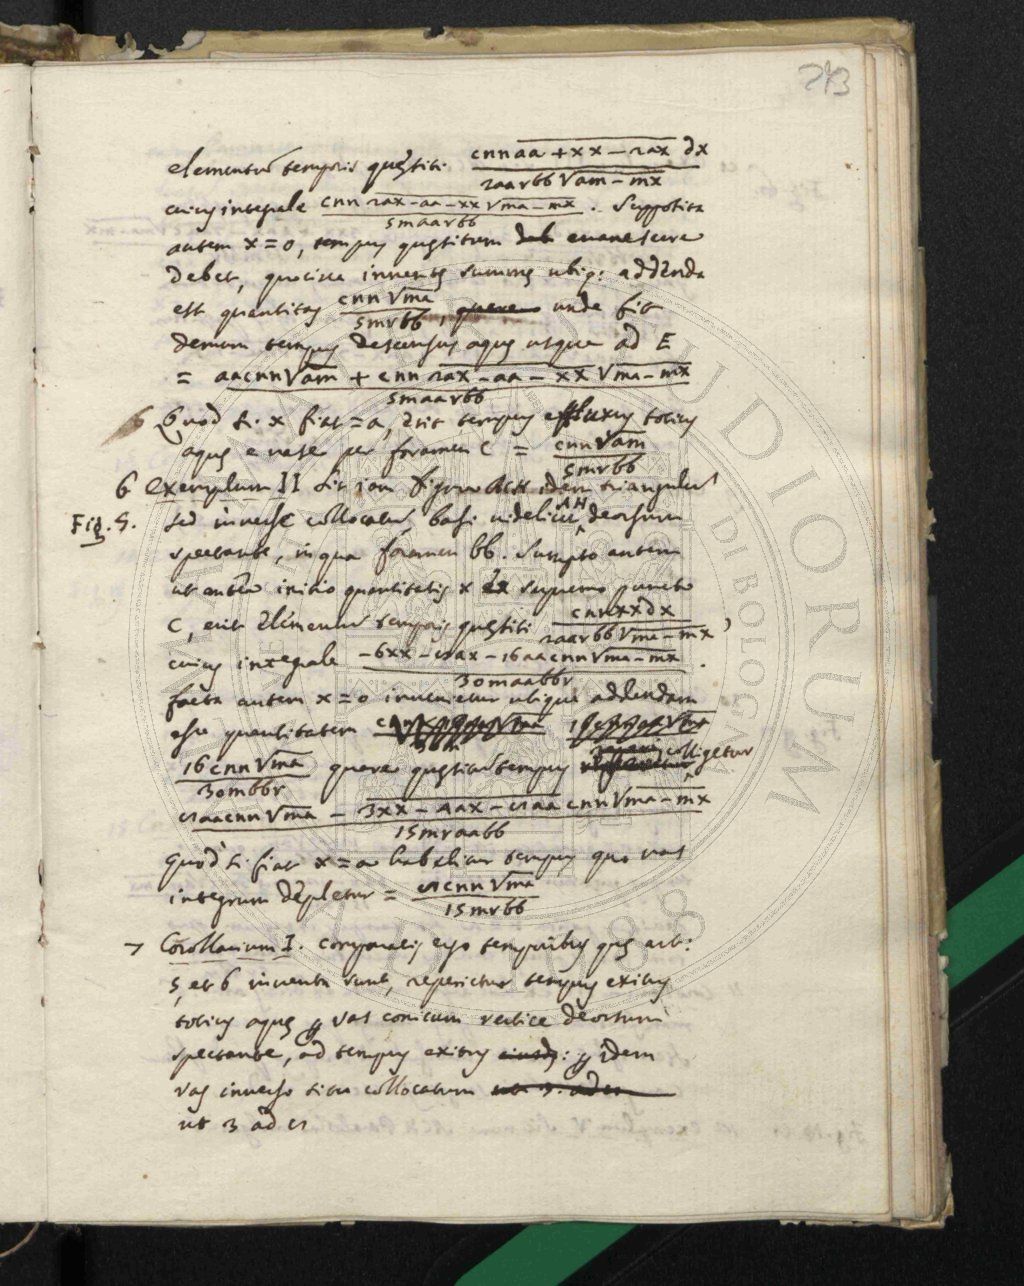 243
elementum temporis quęsiti cnnaa + xx − 2ax dx / 2aarbb√am − mx
cuius integrale cnn 2ax − aa − xx √ma − mx / 5maarbb. Supposita
autem x = 0, tempus quęsitum evanescere
debet, quocirca inventę summę ubiq: addenda
est quantitas cnn√ma / 5mrbb, unde fit
demum tempus descensus aquę usque ad E
= aacnn√am + cnn 2ax − aa − xx √ma − mx / 5maarbb
Quod si x fiat = a, erit tempus effluxus totius
aquę e vase per foramen C = cnn√am / 5mrbb
6 Exemplum II Sit iam figura ACH idem triangulus
Fig. 5. sed inverse collocatus basi videlicet AH deorsum
spectante, in qua foramen bb. Sumpto autem
ut antea initio quantitatis x ex supremo puncto
C, erit elementum temporis quęsiti cnnxxdx / 2aarbb√ma − mx,
cuius integrale −6xx − 8ax − 16aacnn√ma − mx / 30maabbr.
facta autem x = 0 invenietur ubique addendam
esse quantitatem
16cnn√ma / 30mbbr quare quęsitum tempus colligetur
8aacnn√ma − 3xx − 4ax − 8aa cnn√ma − mx / 15mraabb
Quod si fiat x = a habebitur tempus quo vas
integrum depletur = 8cnn√ma / 15mrbb
7 Corollarium I. Comparatis ergo temporibus quę art:
5, et 6 inventa sunt, reperietur tempus exitus
totius aquę vas conicum vertice deorsum
spectante, ad tempus exitus idem
vas inverso situ collocatum
ut 3 ad 8